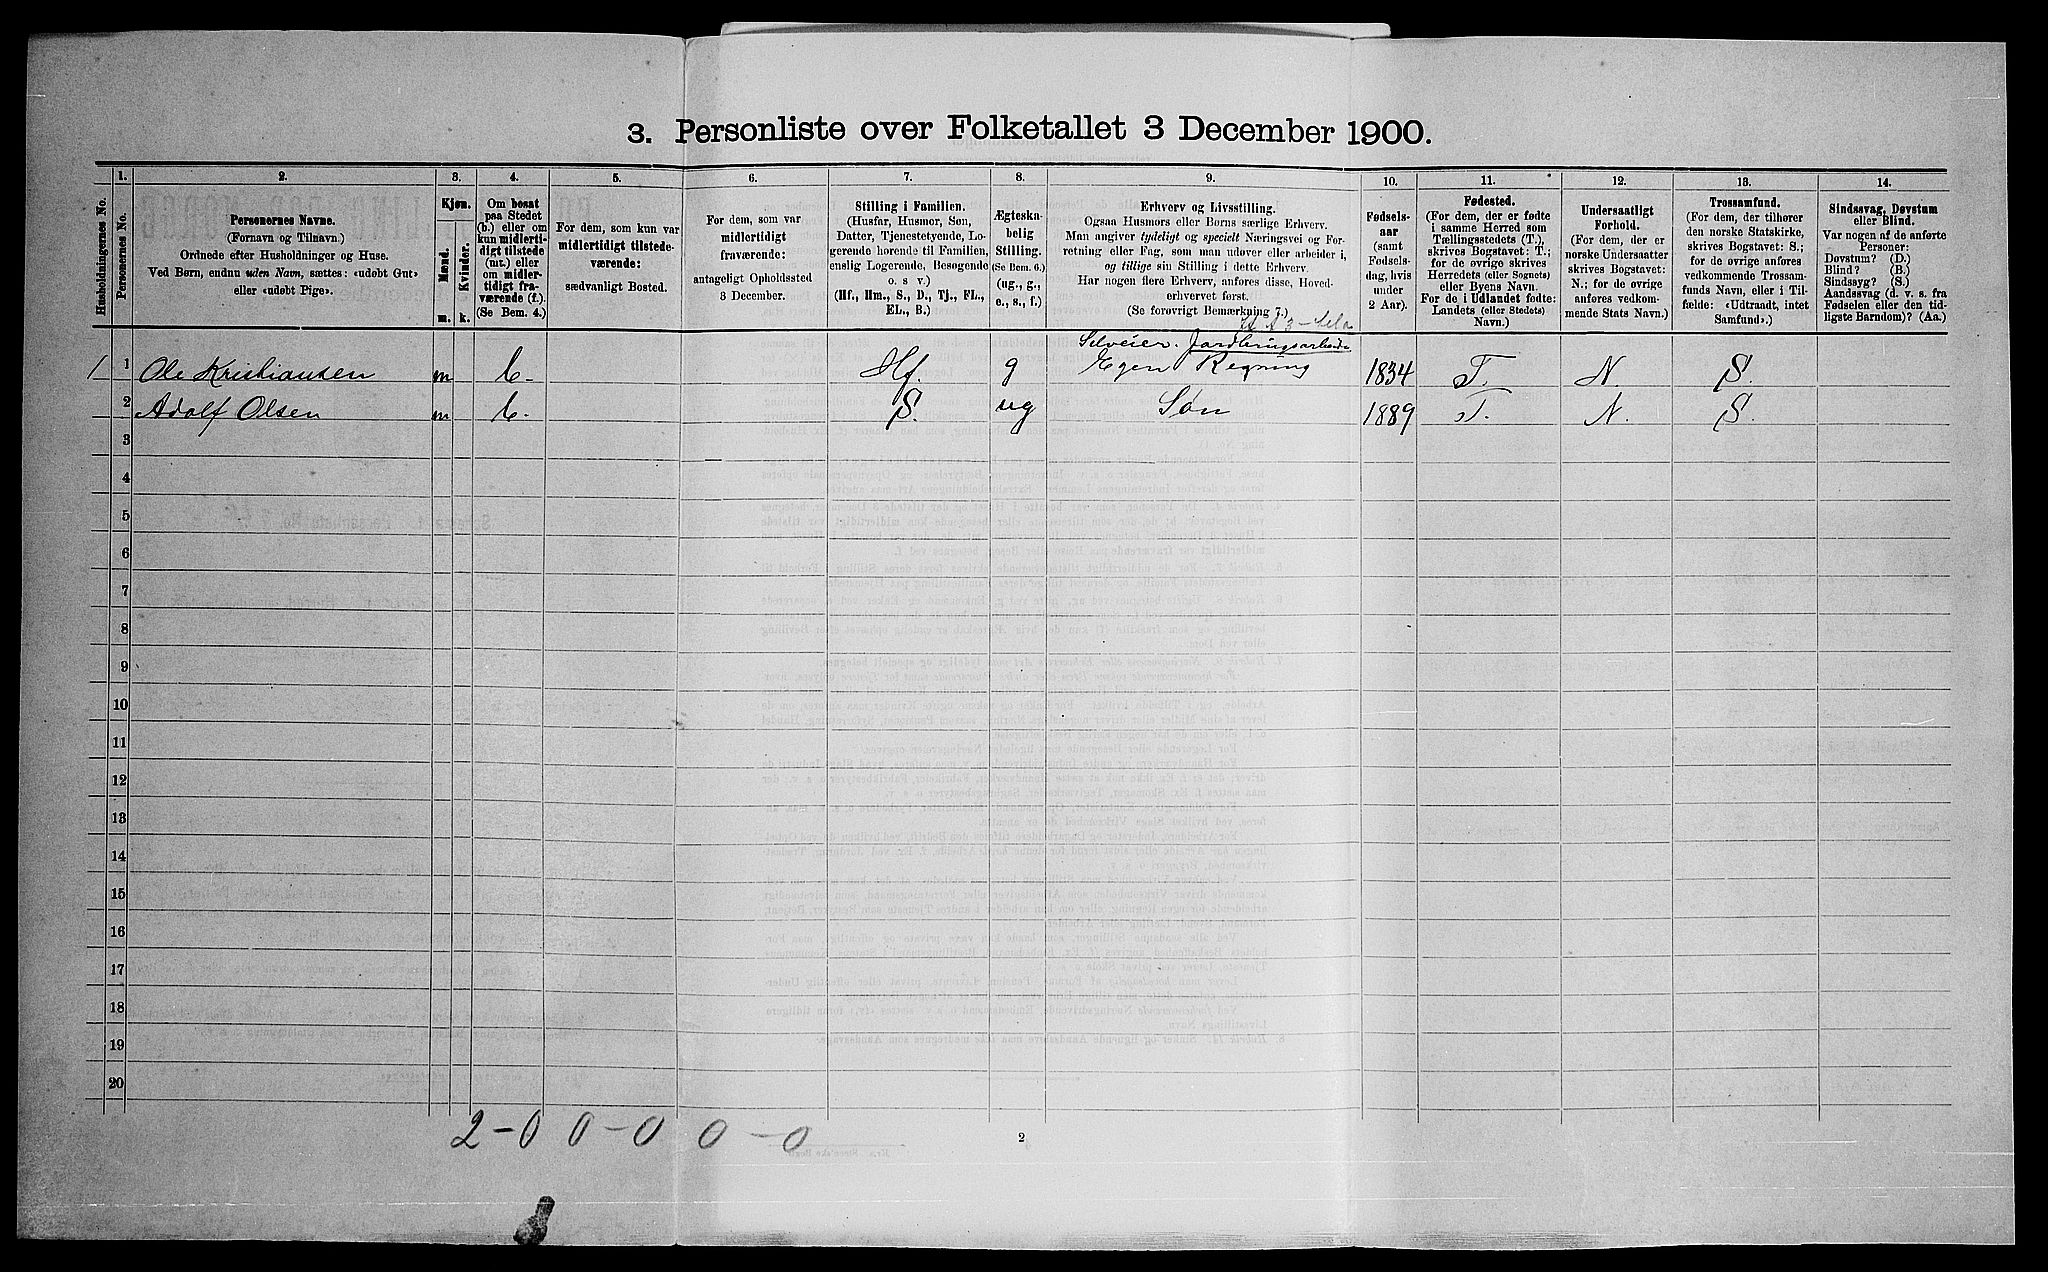 3. Personliste over Folketallet 3 December 1900.
Husholdningernes No.
1.
Personernes No.
2.
Personernes Navne.
(Fornavn og Tilnavn.)
Ordnede efter Husholdninger og Huse.
Ved Børn, endnu uden Navn, sættes: «udøbt Gut»
eller «udøbt Pige».
3.
Kjøn.
Mænd.
m.
Kvinder.
k.
4.
Om bosat
paa Stedet
(b.) eller om
kun midlerti-
digt tilstede
(mt.) eller
om midler-
tidigt fra-
værende (f.).
(Se Bem. 4.)
5.
For dem, som kun var
midlertidigt tilstede-
værende:
sædvanligt Bosted.
6.
For dem, som var
midlertidigt
fraværende:
antageligt Opholdssted
3 December.
7.
Stilling i Familien.
(Husfar, Husmor, Søn,
Datter, Tjenestetyende, Lo-
gerende hørende til Familien,
enslig Logerende, Besøgende
o. s. v.)
(Hf., Hm., S., D., Tj., FL.,
EL., B.)
8.
Ægteska-
belig
Stilling.
(Se Bem. 6.)
(ug., g.,
e., s., f.)
9.
Erhverv og Livsstilling.
Ogsaa Husmors eller Børns særlige Erhverv.
Man angiver tydeligt og specielt Næringsvei og For-
retning eller Fag, som man udøver eller arbeider i,
og tillige sin Stilling i dette Erhverv.
Har nogen flere Erhverv, anføres disse, Hoved-
erhvervet først.
(Se forøvrigt Bemærkning 7.)
10.
Fødsels-
aar
(samt
Fødsels-
dag, hvis
under
2 Aar).
11.
Fødested.
(For dem, der er fødte
i samme Herred som
Tællingsstedets (T.),
skrives Bogstavet: T.;
for de øvrige skrives
Herredets (eller Sognets)
eller Byens Navn.
For de i Udlandet fødte:
Landets (eller Stedets)
Navn.)
12.
Undersaatligt
Forhold.
(For dem, der er
norske Undersaatter
skrives Bogstavet:
N.; for de øvrige
anføres vedkom-
mende Stats Navn.)
13.
Trossamfund.
(For dem, der tilhører
den norske Statskirke,
skrives Bogstavet: S.;
for de øvrige anføres
vedkommende Trossam-
funds Navn, eller i Til-
fælde: «Udtraadt, intet
Samfund».)
14.
Sindssvag, Døvstum
eller Blind.
Var nogen af de anførte
Personer:
Døvstum? (D.)
Blind? (B.)
Sindssyg? (S.)
Aandssvag (d. v. s. fra
Fødselen eller den tid-
ligste Barndom)? (Aa.)
Selveier. Jordbrugsarbeide
1 1 Ole Kristiansen m b. Hf. g Egen Regning 1834 T. N. S.
2 Adolf Olsen m b. S. ug Søn 1889 T. N. S.
3
4
5
6
7
8
9
10
11
12
13
14
15
16
17
18
19
20
2-0 0-0 0-0
2